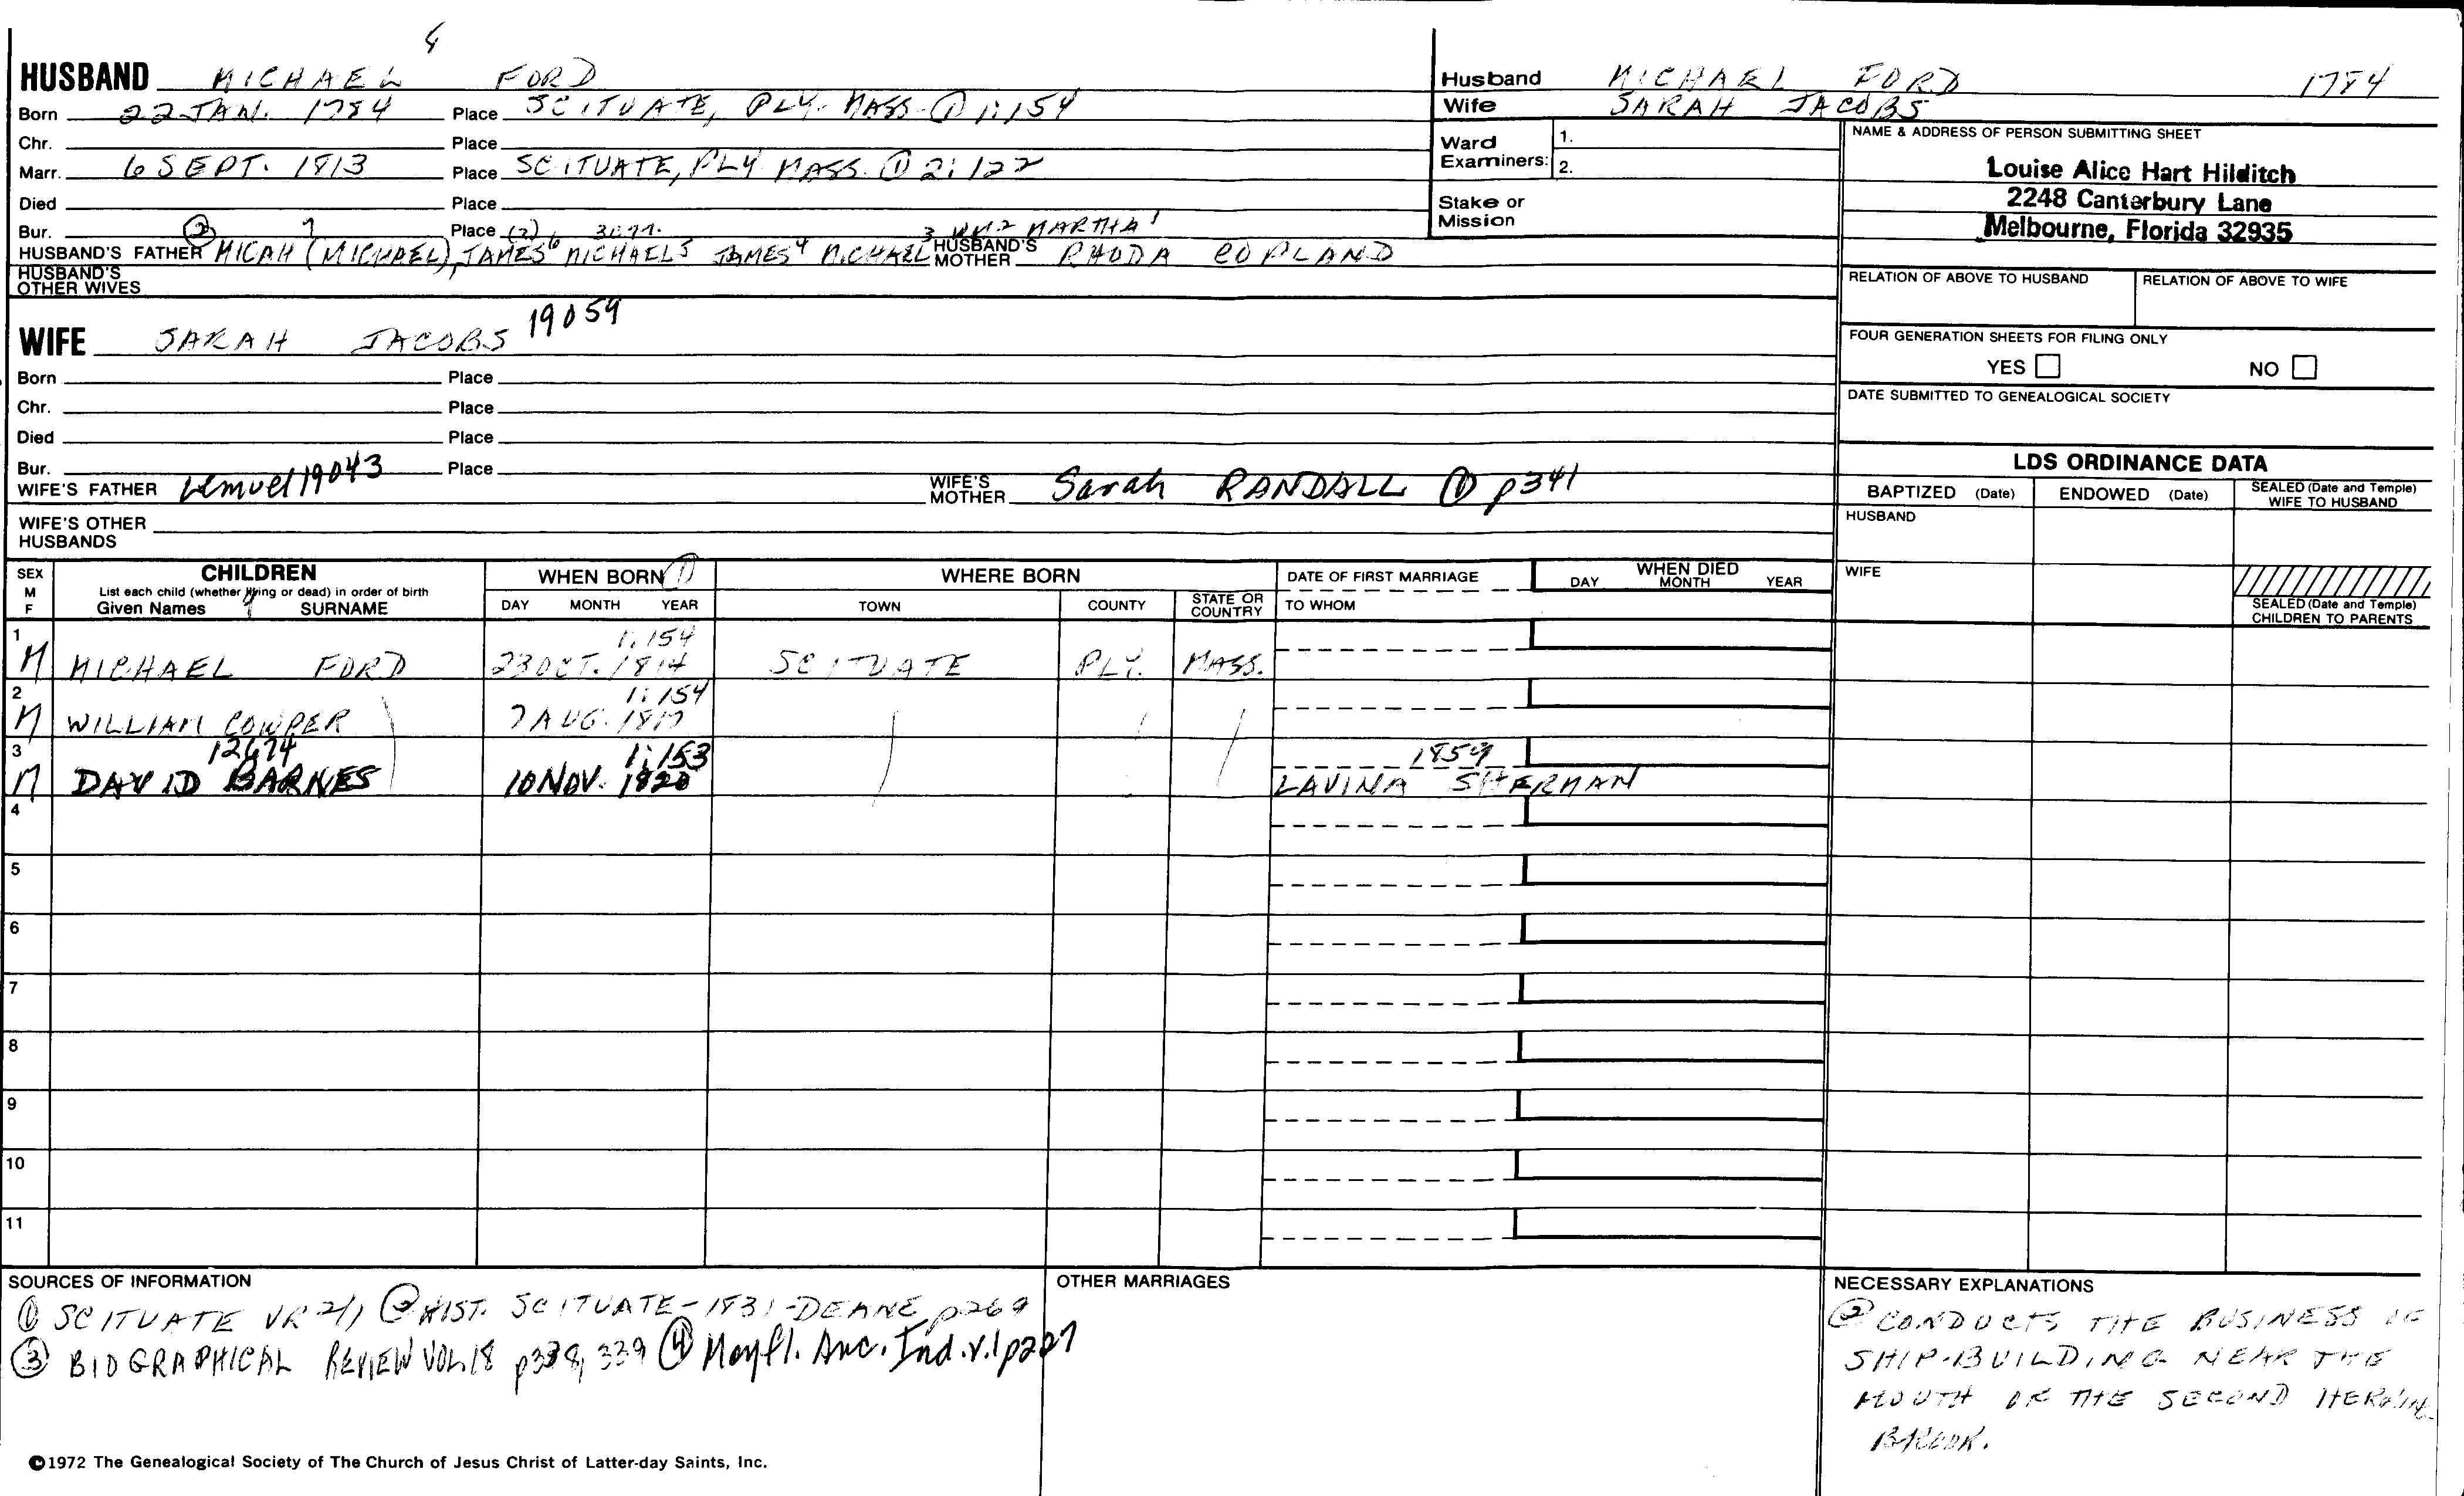 4
HUSBAND MICHAEL FORD
Born 22 JAN. 1784 Place SCITUATE, PLY. MASS. ① 1:154
Chr. Place
Marr. 6 SEPT. 1813 Place SCITUATE, PLY MASS. ① 2:122
Died Place
Bur. Place
HUSBAND'S FATHER MICAH (MICHAEL)7, JAMES6 MICHAEL5 JAMES4 MICHAEL3 WM2 MARTHA1 HUSBAND'S MOTHER RHODA COPLAND
HUSBAND'S OTHER WIVES
WIFE SARAH JACOBS 19059
Born Place
Chr. Place
Died Place
Bur. Place
WIFE'S FATHER Lemuel 19043 WIFE'S MOTHER Sarah RANDALL ① p341
WIFE'S OTHER HUSBANDS
Husband MICHAEL FORD 1784
Wife SARAH JACOBS
Ward Examiners: 1.
2.
Stake or Mission
NAME & ADDRESS OF PERSON SUBMITTING SHEET
Louise Alice Hart Hilditch
2248 Canterbury Lane
Melbourne, Florida 32935
RELATION OF ABOVE TO HUSBAND RELATION OF ABOVE TO WIFE
FOUR GENERATION SHEETS FOR FILING ONLY
YES NO
DATE SUBMITTED TO GENEALOGICAL SOCIETY
LDS ORDINANCE DATA
BAPTIZED (Date) ENDOWED (Date) SEALED (Date and Temple) WIFE TO HUSBAND
HUSBAND
WIFE
SEALED (Date and Temple) CHILDREN TO PARENTS
SEX M F
CHILDREN
List each child (whether living or dead) in order of birth
Given Names SURNAME
WHEN BORN ①
DAY MONTH YEAR
WHERE BORN
TOWN COUNTY STATE OR COUNTRY
DATE OF FIRST MARRIAGE
TO WHOM
WHEN DIED
DAY MONTH YEAR
1 1:154
M MICHAEL FORD 23 OCT. 1814 SCITUATE PLY. MASS.
2 1:154
M WILLIAM COWPER 7 AUG. 1817
3 12674 1:153 1859
M DAVID BARNES 10 NOV. 1820 LAVINA SHERMAN
4
5
6
7
8
9
10
11
SOURCES OF INFORMATION
① SCITUATE VR 2/1 ② HIST. SCITUATE-1831-DEANE p269
③ BIOGRAPHICAL REVIEW VOL 18 p338, 339 ④ Mayfl. Anc. Ind. v.1 p227
OTHER MARRIAGES
NECESSARY EXPLANATIONS
② CONDUCTS THE BUSINESS OF
SHIP-BUILDING NEAR THE
MOUTH OF THE SECOND HERRING
BROOK.
©1972 The Genealogical Society of The Church of Jesus Christ of Latter-day Saints, Inc.